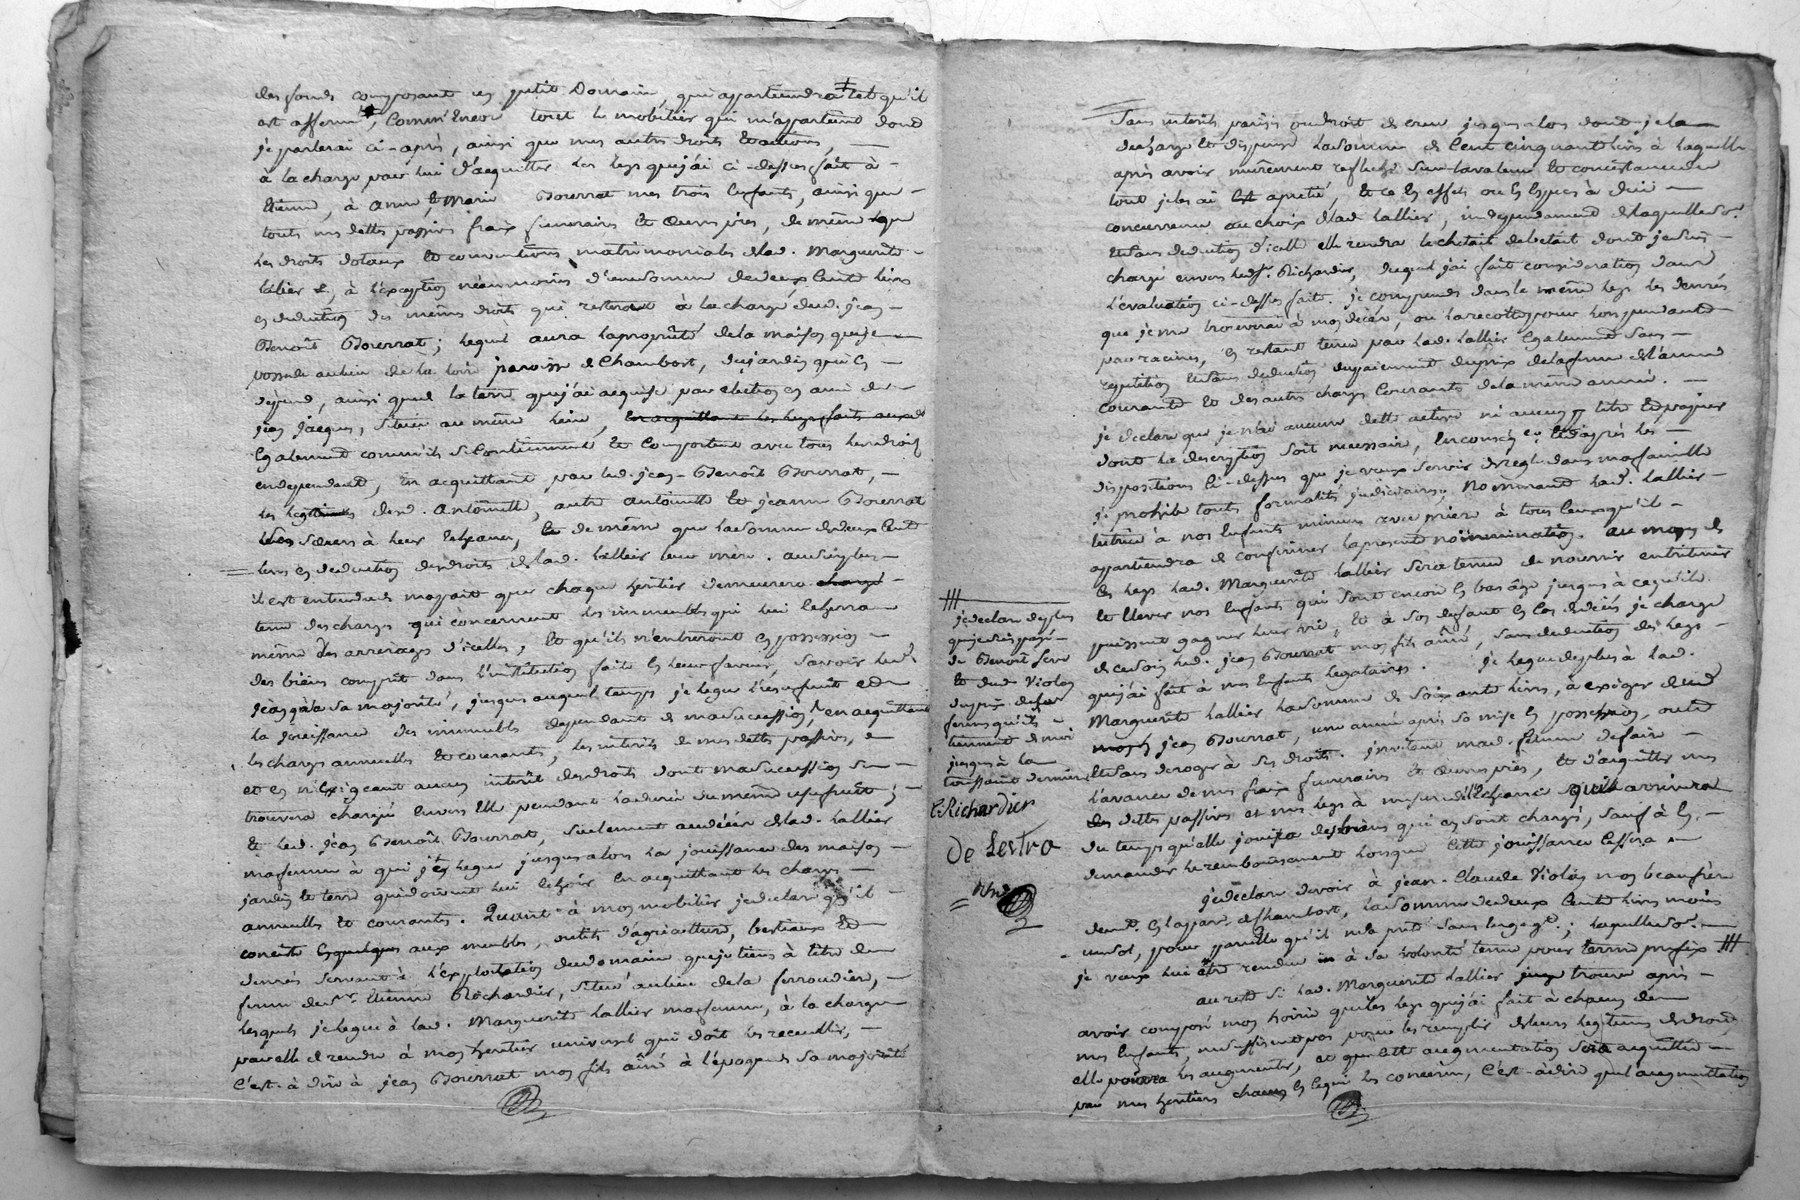 des fonds composant ce petit Domaine qui appartiendra tel qu'il
est affermé, Comm'encor tout le mobilier qui m'appartient dont
je parlerai ci-après, ainsi que mes autres droits et actions,
à la charge par lui d'acquitter les legs que j'ai ci-dessus fait à
Etienne, à anne, et Marie Bourrat mes trois Enfants, ainsi que
touts mes dettes passives fraix funeraires et œuvres pies, de même que
les droits dotaux et conventions matrimoniales de lad. Marguerite
lalier, à l'exception néanmoins d'une somme de deux Cent livres
en deduction des mêmes droits qui resteront à la charge dud. jean
Benoît Bourrat; lequel aura la propriété de la maison que je
possede au lieu de la loire paroisse de Chambost, du jardin qui en
dépend, ainsi que de la terre que j'ai acquise par election en ami de
jean jacques, située au même lieu, en acquittant les legs faits auxd.
Egalement comm'ils se Contiennent et Comportent avec tous leurs droits
endependants, en acquittant par led. jean-Benoît Bourrat,
les legitimes desd. Antoinette, autre antoinette et jeanne Bourrat
ses sœurs à leur echeance, et de même que la somme de deux Cent
livres en deduction des droits de lad. lallier leur mère. au surplus
il est entendu de ma part que chaque heritier demeurera chargé
tenu des charges qui concernent les immeubles qui lui echerra
même des arrérages d'icelles, et qu'ils n'entreront en possession
des biens compris dans l'institution faite en leur faveur, savoir led.
jean qu'à sa majorité, jusques auquel temps je legue l'usufruit et
la jouissance des immeubles dependant de ma succession, en acquittant
les charges annuelles et courantes, les interêts de mes dettes passives, 
et en n'exigeant aucun interêt des droits dont ma succession se
trouvera chargée envers Elle pendant la durée du même usufruit;
et led. jean Benoît Bourrat, seulement au décès de lad. lallier
ma femme à qui j'en legue jusques alors la jouissance des maison
jardin et terre qui doivent lui echoir en acquittant les charges
annuelles et courantes. Quant à mon mobilier je declare qu'il
consiste en quelques aux meubles, outils d'agriculture, bestiaux et
denrés servant à l'exploitation du domaine que je tiens à titre de
ferme de sr. Etienne Richardier, situé au lieu de la ferroudiere,
lesquels je legue à lad. Marguerite lallier ma femme, à la charge
par elle de rendre à mon heritier universel qui doit les recueillir,
C'est-à-dire à jean Bourrat mon fils ainé à l'époque de sa majorité
Sans interêts parisis ou droit de crue jusques alors dont je la
decharge et dispense la somme de Cent cinquante livres à laquelle
après avoir murement reflechi sur la valeur et consistance du
tout je les ai apretié, et ce en effets ou en Espèces à dire
concurrence au choix de lad. lallier, independament de laquelle so.e
et sans deduction d'icelle elle rendra le chetail de betail dont je suis
chargé envers led. sr. Richardier, duquel j'ai fait consideration dans
l'evaluation ci-dessus faite. je comprends dans le même legs les denrés
que je me trouverai à mon décès, ou la recolte pour lors pendante
par racines, en restant tenue par lad. lallier Egalement sans
repetition et sans deduction du payement du prix de la ferme de l'année
courante et des autres charges Courantes de la même année.
je declare que je n'ai aucune dette active ni aucun titre et papier
dont la description soit necessaire, en consequence et d'après les
dispositions ci-dessus que je veux servir de regle dans ma famille
je prohibe toute formalité judiciaire, Nommant lad. lallier
tutrice à nos enfants mineurs avec priere à tous Ceux qu'il
appartiendra de confirmer la presente nommination. au moyen de
ce legs lad. Marguerite lallier sera tenue de nourrir entretenir
et Elever nos Enfants qui sont encore en bas âge jusques à ce qu'ils
puissent gagner leur vie, et à son defaut en cas de decès je charge
de ces soins led. jean Bourrat mon fils ainé, sans deduction des legs
que j'ai fait à mes Enfants legataires. je legue de plus à lad.
Marguerite lallier la somme de soixante livres, à exiger dud.
jean Bourrat, une année après sa mise en possession, outre
et sans deroger à ses droits. j'invite mad. femme de faire
l'avance de mes fraix funeraires et œuvres pies, et d'acquitter mes
dettes passives et mes legs à mesure de l'Echeance qu'ill arrivera
du temps qu'elle jouira des biens qui en sont chargés, sauf à en
demander le remboursement lorsque cette jouissance cessera
je declare devoir à jean-Claude Violay mon beau frère
demt. en la parr. de Chambost, la somme de deux Cent livres moins
un sol, pour pareille qu'il m'a prêté sans langage, laquelle so.e
je veux lui être rendue à sa volonté tenue pour terme prefix ///
au reste si lad. Marguerite lallier juge trouve après
avoir composé mon hoirie que les legs que j'ai fait à chacun de
mes Enfants, ne suffisent pas pour les remplir de leurs legitimes de droit
elle pourra les augmenter, et que cette augmentation sera acquittée
par mes heritiers chacun en ce qui les concerne, C'est-à-dire que l'augmentation
///
je declare de plus
que je dois payé
de Benoît
et dud Violay
du prix de la
ferme qu'ils
tiennent de moi
jusques à la
toussaint derniere
E. Richardier
De Lestra